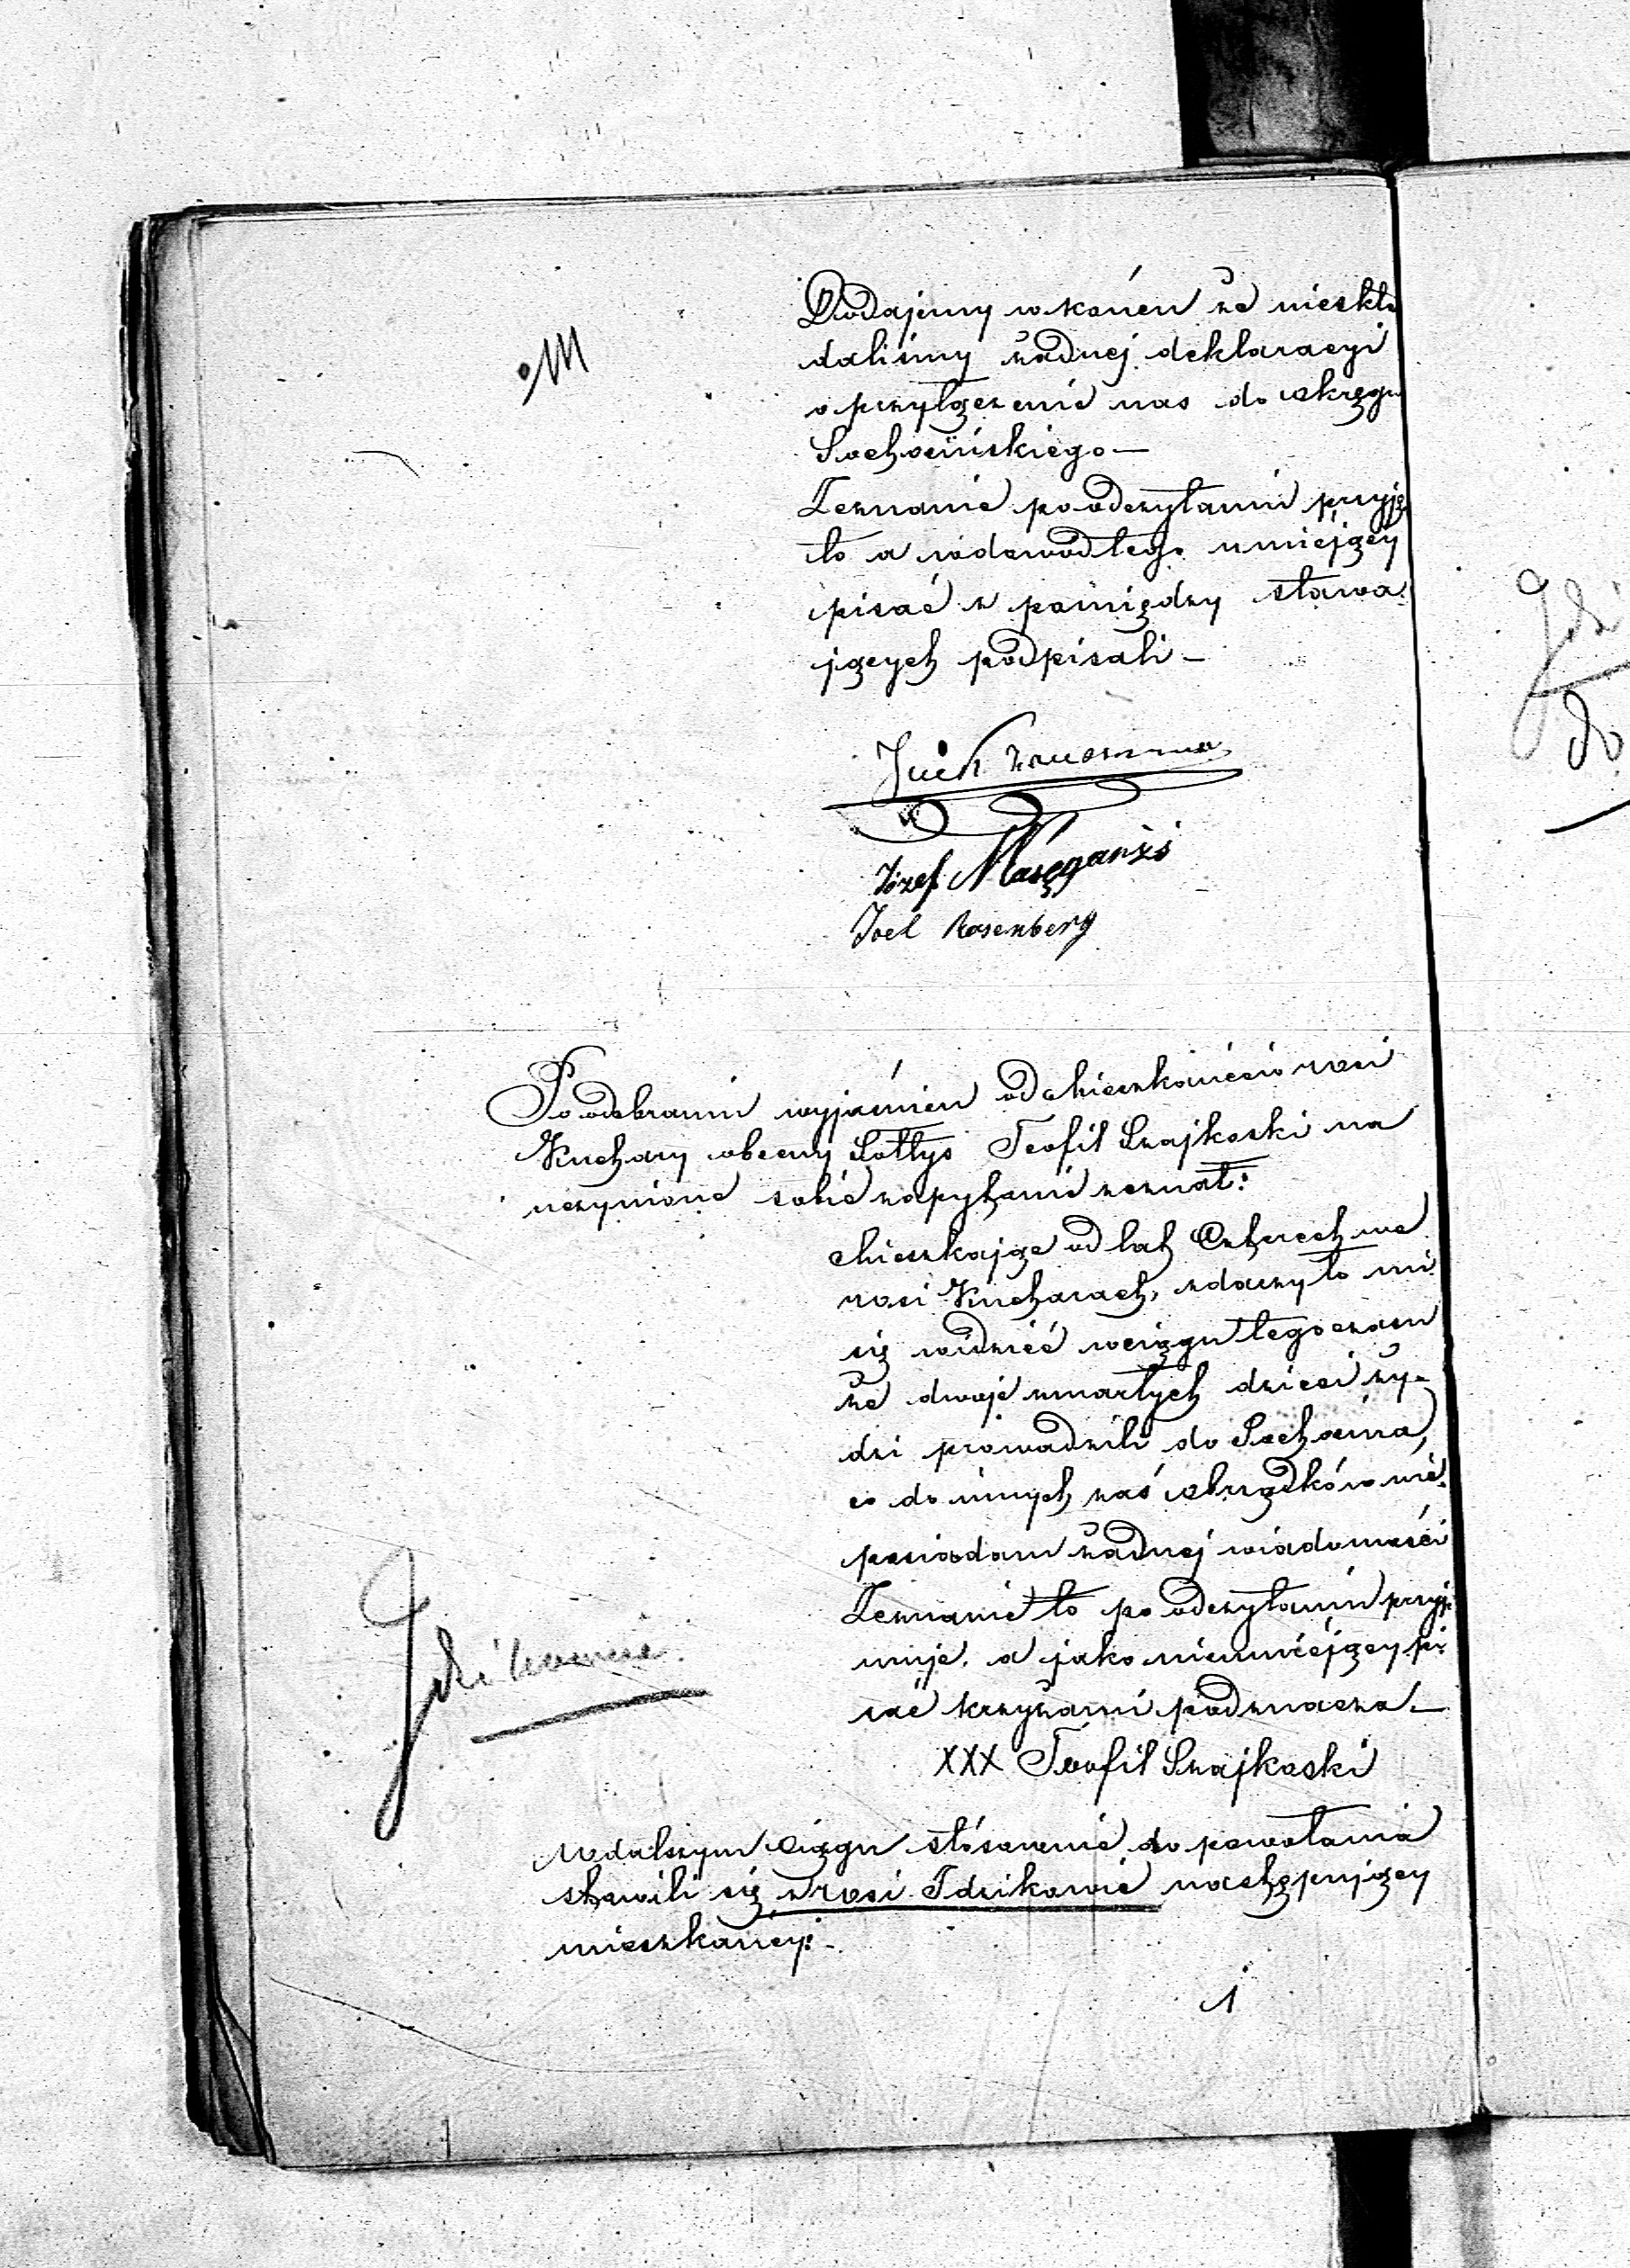 Dodajemy w końcu że nieskła
daliśmy żadnej deklaracyi
o przyłączenie nas do okręgu
Sochocińskiego —
Zeznanie po odczytaniu przyję
to a w dowód tego umiejący
pisać z pomiędzy stawa
jących podpisali —
Józef
Joel Rosenberg
Po odebraniu wyjaśnień od mieszkańców wsi
Kuchary obecny Sołtys Teofil Szajkoski na
uczynione sobie zapytanie zeznał:
Mieszkając od lat Czterech we
wsi Kucharach, zdarzyło mi
się widzieć w ciągu tego czasu
że dwoje zmarłych dzieci ży-
dzi prowadzili do Sochocina,
co do innych zaś obrządków nie
posiadam żadnej wiadomości
Zeznanie to po odczytaniu przyj
muje, a jako nieumiejący pi
sać krzyżami podznacza —
XXX Teofil Szajkoski
W dalszym ciągu stósownie do powołania
stawili się z wsi Idzikowic następujący
mieszkańcy: -
1